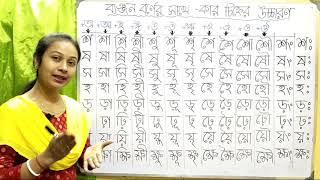 ব্যঞ্জন বর্ণের সাথে -কার চিহ্নের উচ্চারণ
শ শা শি শী শু শূ শে শৈ শো শৌ শং শঃ
ষ ষা ষি ষী ষু ষূ ষে ষৈ ষো ষৌ ষং ষঃ
স সা সি সী সু সূ সে সৈ সো সৌ সং সঃ
হ হা হি হী হু হূ হে হৈ হো হৌ হং হঃ
ড় ড়া ড়ি ড়ী ড়ু ড়ূ ড়ে ড়ৈ ড়ো ড়ৌ ড়ং ড়ঃ
ঢ় ঢ়া ঢ়ি ঢ়ী ঢ়ু ঢ়ূ ঢ়ে ঢ়ৈ ঢ়ো ঢ়ৌ ঢ়ং ঢ়ঃ
য় য়া য়ি য়ী য়ু য়ূ য়ে য়ৈ য়ো য়ৌ য়ং য়ঃ
ক্ষ ক্ষা ক্ষি ক্ষী ক্ষু ক্ষূ ক্ষে ক্ষৈ ক্ষো ক্ষৌ ক্ষং ক্ষঃ